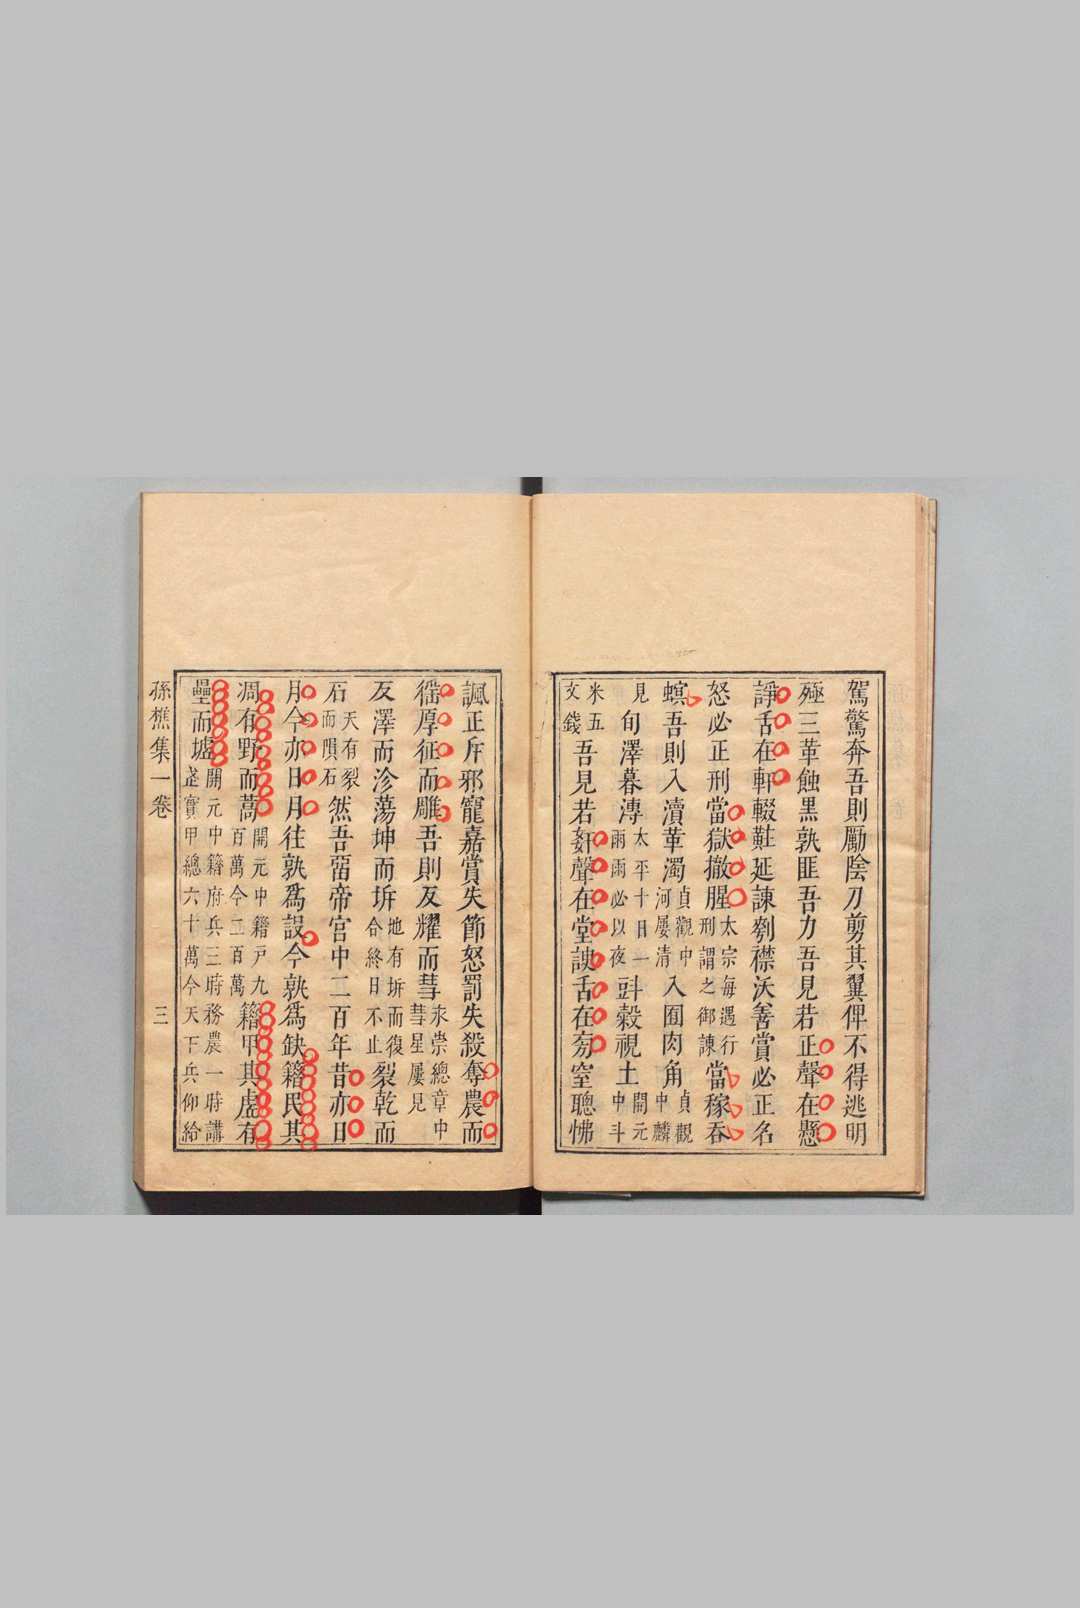 駕驚奔吾則勵陰刀剪其翼俾不得逃明
殛三革蝕黑孰匪吾力吾見若正聲在懸
諍舌在軒輟鞋延諫剺襟沃善賞必正名
怒必正刑當獄撤腥太宗每遇行刑謂之御諫當稼吞
螟吾則入瀆革濁貞觀中河屢清入囿肉角貞觀中麟
見旬澤暮溥太平十日一雨雨必以夜㪷穀視土開元中斗
米五文錢吾見若姦聲在堂諛舌在旁窒聰怫
諷正斥邪寵嘉賞失節怒罰失殺奪農而
徭厚征而雕吾則反耀而彗永崇總章中彗星屢見
反澤而沴蕩坤而坼地有坼而復合終日不止裂乾而
石天有裂而隕石然吾留帝宮中二百年昔亦日
月今亦日月往孰爲設今孰爲缺籍民其
凋有野而蒿開元中籍戸九百萬今二百萬籍甲其虛有
壘而墟開元中籍府兵三時務農一時講武實甲總六十萬今天下兵仰給
孫樵集一卷
三